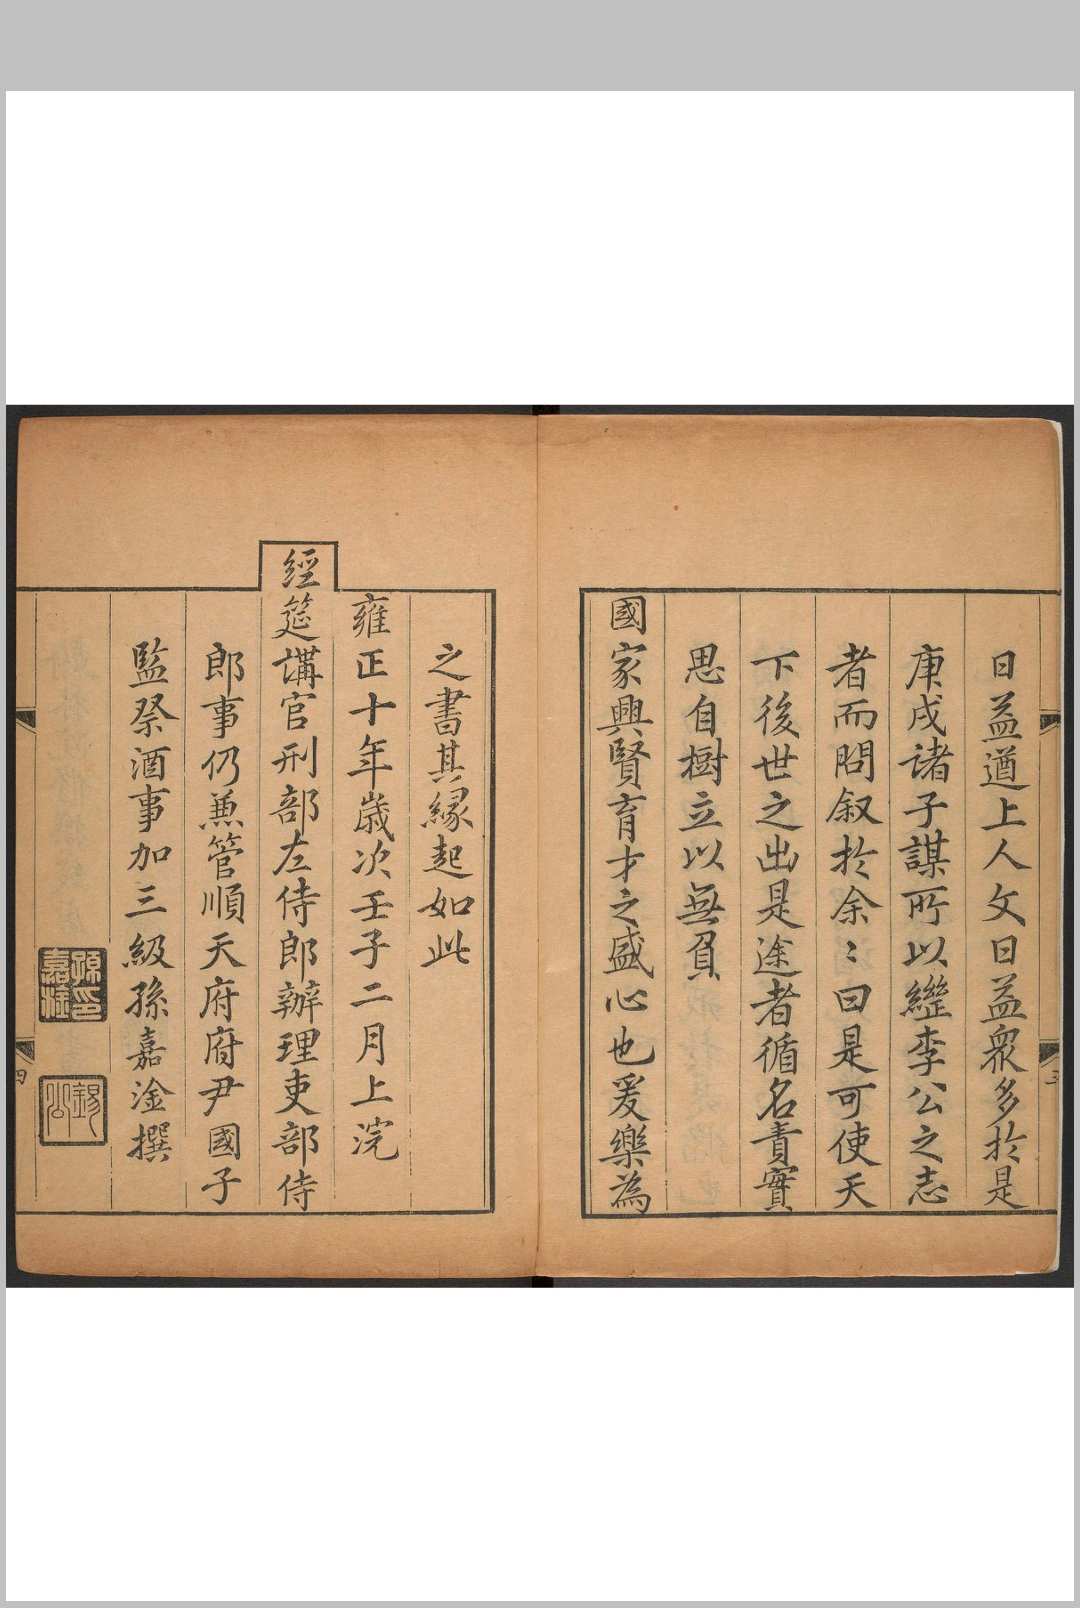 日益遒上人文日益衆多於是
庚戌諸子謀所以繼李公之志
者而問叙於余〻曰是可使天
下後世之出是途者循名責實
思自樹立以無負
國家興賢育才之盛心也爰樂為
之書其緣起如此
雍正十年歲次壬子二月上浣
經筵講官刑部左侍郎辦理吏部侍
郎事仍兼管順天府府尹國子
監祭酒事加三級孫嘉淦撰
孫嘉淦印
錫公
三
四